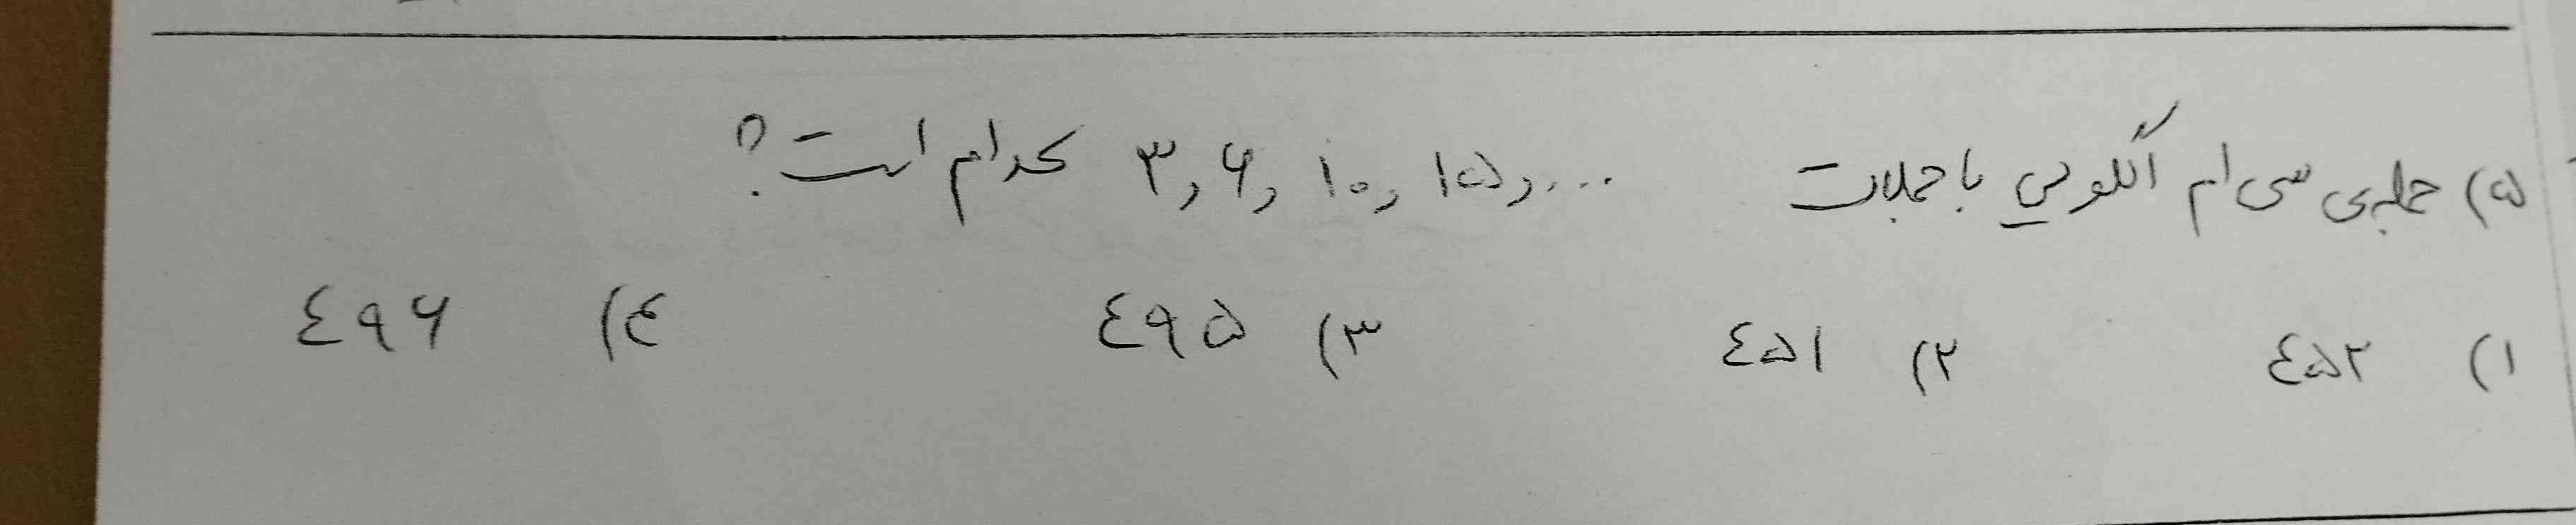 ۵) جمله‌ی سی ام الگویی با جملات ۳, ۶, ۱۰, ۱۵, ... کدام است؟
۱) ٤۵۲ ۲) ٤۵۱ ۳) ٤۹۵ ۴) ٤۹۶